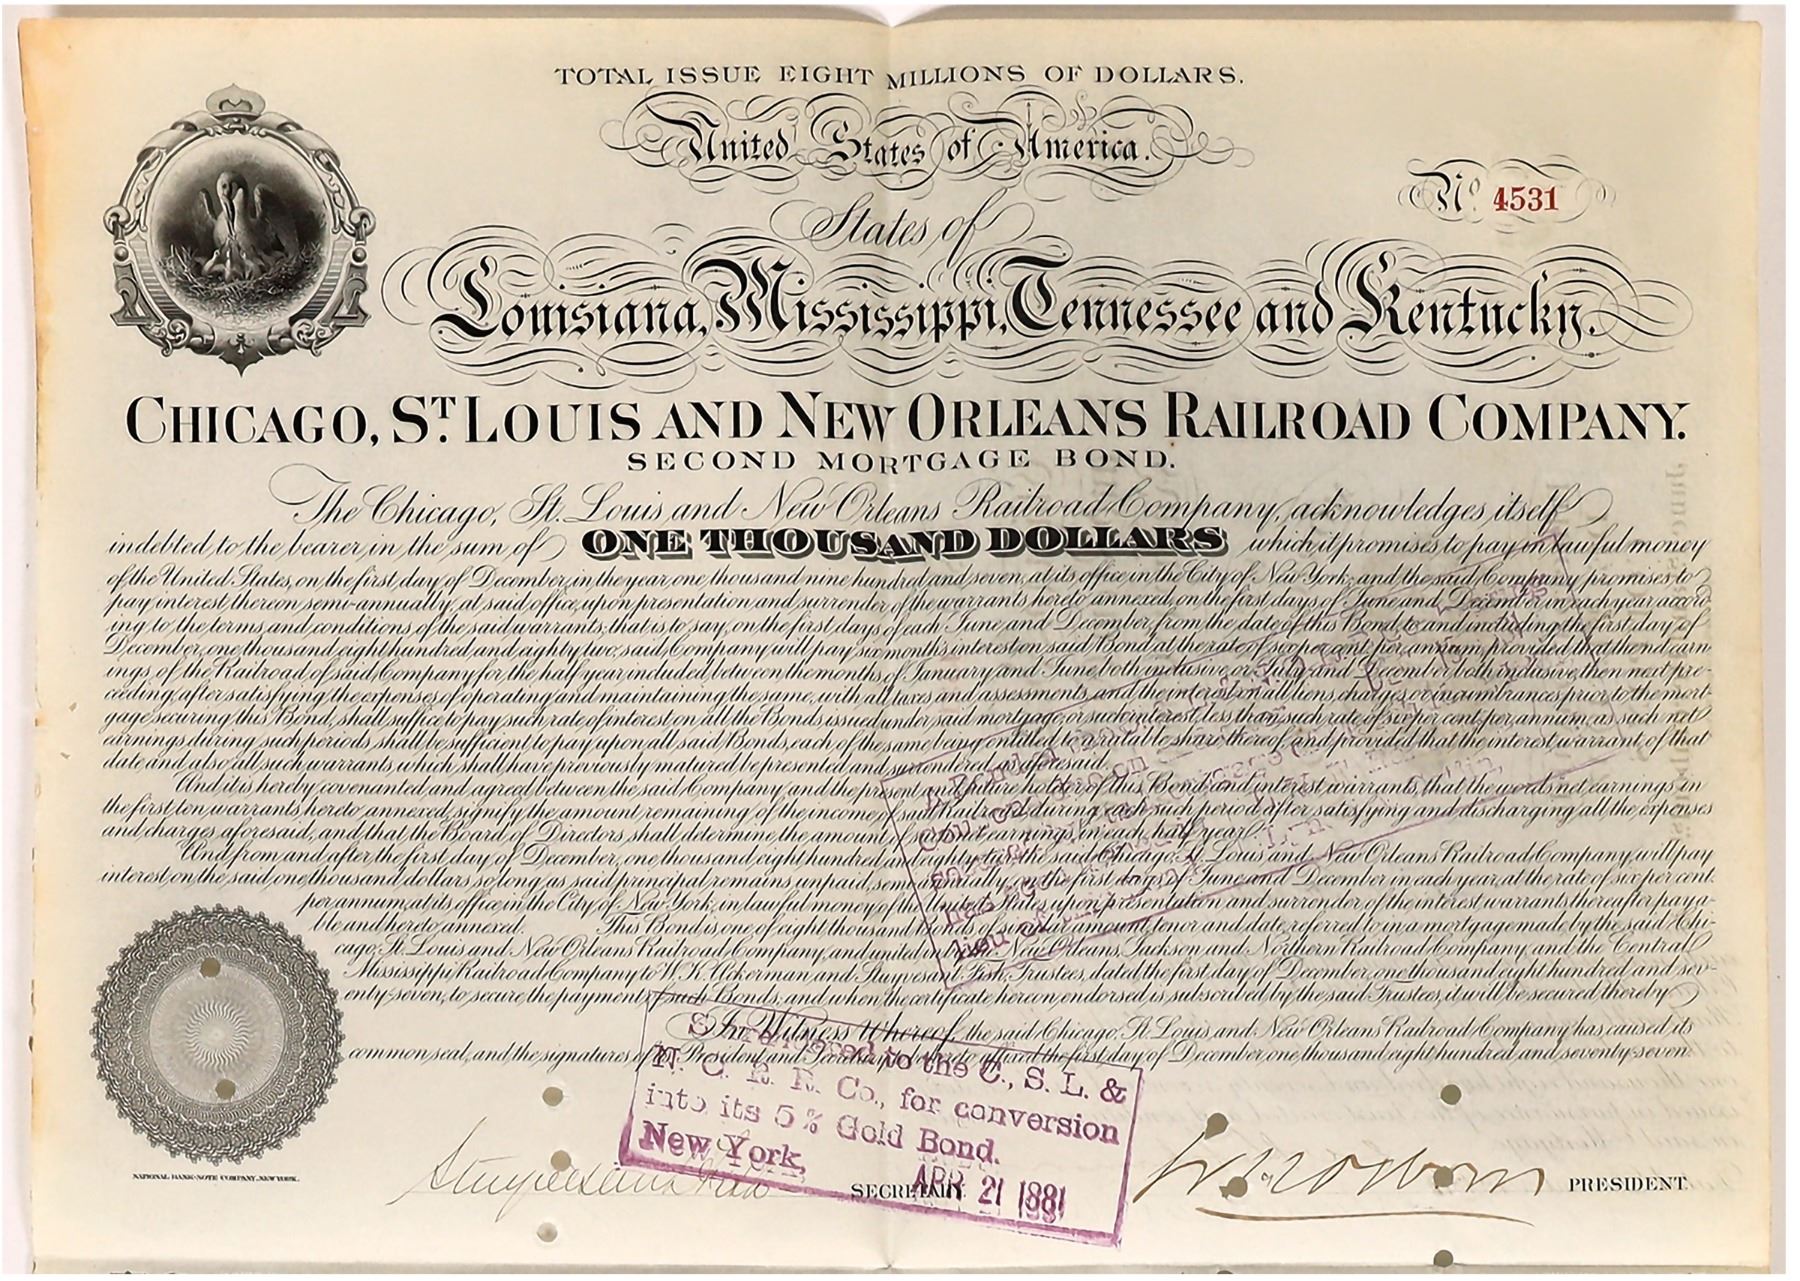 TOTAL ISSUE EIGHT MILLIONS OF DOLLARS.
United States of America.
Nº 4531
States of
Louisiana, Mississippi, Tennessee and Kentucky.
CHICAGO, ST. LOUIS AND NEW ORLEANS RAILROAD COMPANY.
SECOND MORTGAGE BOND.
The Chicago, St. Louis and New Orleans Railroad Company, acknowledges itself
indebted to the bearer, in the sum of ONE THOUSAND DOLLARS which it promises to pay in lawful money
of the United States, on the first day of December, in the year one thousand nine hundred and seven, at its office in the City of New York, and the said Company promises to
pay interest thereon semi-annually, at said office, upon presentation and surrender of the warrants hereto annexed, on the first days of June and December in each year accord-
ing to the terms and conditions of the said warrants; that is to say, on the first days of each June and December, from the date of this Bond, to and including the first day of
December, one thousand eight hundred and eighty two, said Company will pay six months interest on said Bond at the rate of six per cent. per annum, provided that the nett earn-
ings of the Railroad of said Company for the half year included between the months of January and June, both inclusive, or July and December both inclusive, then next pre-
ceding, after satisfying the expenses of operating and maintaining the same, with all taxes and assessments, and the interest on all liens, charges or incumbrances prior to the mort-
gage securing this Bond, shall suffice to pay such rate of interest on all the Bonds issued under said mortgage, or such interest, less than such rate of six per cent. per annum, as such nett
earnings during such periods shall be sufficient to pay upon all said Bonds, each of the same being entitled to a ratable share thereof, and provided that the interest warrant of that
date and also all such warrants, which shall have previously matured be presented and surrendered, as aforesaid.
And it is hereby covenanted and agreed between the said Company and the present and future holder of this Bond and interest warrants, that the words net earnings in
the first ten warrants hereto annexed, signify the amount remaining of the income of said Railroad during each such period after satisfying and discharging all the expenses
and charges aforesaid, and that the Board of Directors shall determine the amount of said net earnings in each half year.
And from and after the first day of December, one thousand eight hundred and eighty two, the said Chicago, St. Louis and New Orleans Railroad Company will pay
interest on the said one thousand dollars so long as said principal remains unpaid, semi-annually, on the first days of June and December in each year, at the rate of six per cent.
per annum, at its office in the City of New York, in lawful money of the United States upon presentation and surrender of the interest warrants thereafter paya-
ble and hereto annexed. This Bond is one of eight thousand Bonds of similar amount, tenor and date, referred to in a mortgage made by the said Chi-
cago, St. Louis and New Orleans Railroad Company, and united in by the New Orleans, Jackson and Northern Railroad Company, and the Central
Mississippi Railroad Company to W. K. Ackerman and Stuyvesant Fish, Trustees, dated the first day of December, one thousand eight hundred and sev-
enty-seven, to secure the payment of such Bonds, and when the certificate hereon endorsed is subscribed by the said Trustees, it will be secured thereby.
In Witness Whereof, the said Chicago, St. Louis and New Orleans Railroad Company has caused its
common seal, and the signatures of its President and Secretary to be hereto affixed the first day of December, one thousand eight hundred and seventy-seven.
Surrendered to the C., S. L. &
N. O. R. R. Co., for conversion
into its 5 % Gold Bond.
New York,
APR 21 1881
NATIONAL BANK-NOTE COMPANY, NEW YORK.
Stuyvesant Fish SECRETARY.
PRESIDENT.